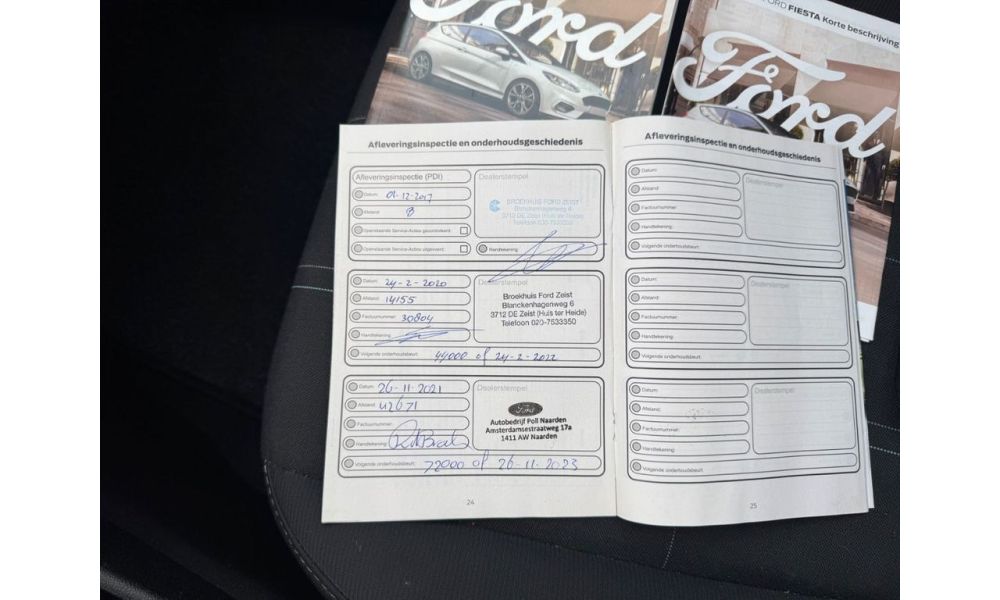 Ford
FORD FIESTA Korte beschrijving
Ford
Afleveringsinspectie en onderhoudsgeschiedenis
Afleveringsinspectie (PDI)
Datum: 01-12-2017
Afstand: 8
Openstaande Service-Acties gecontroleerd:
Openstaande Service-Acties uitgevoerd:
Dealerstempel
BROEKHUIS FORD ZEIST
Blanckenhagenweg 6
3712 DE Zeist (Huis ter Heide)
Telefoon 020-7533350
Handtekening:
Datum: 24-2-2020
Afstand: 14155
Factuurnummer: 30804
Handtekening:
Volgende onderhoudsbeurt: 44000 of 24-2-2022
Dealerstempel
Broekhuis Ford Zeist
Blanckenhagenweg 6
3712 DE Zeist (Huis ter Heide)
Telefoon 020-7533350
Datum: 26-11-2021
Afstand: 42671
Factuurnummer:
Handtekening:
Volgende onderhoudsbeurt: 72000 of 26-11-2023
Dealerstempel
Ford
Autobedrijf Poll Naarden
Amsterdamsestraatweg 17a
1411 AW Naarden
24
Afleveringsinspectie en onderhoudsgeschiedenis
Datum:
Afstand:
Factuurnummer:
Handtekening:
Volgende onderhoudsbeurt:
Dealerstempel
Datum:
Afstand:
Factuurnummer:
Handtekening:
Volgende onderhoudsbeurt:
Dealerstempel
Datum:
Afstand:
Factuurnummer:
Handtekening:
Volgende onderhoudsbeurt:
Dealerstempel
25